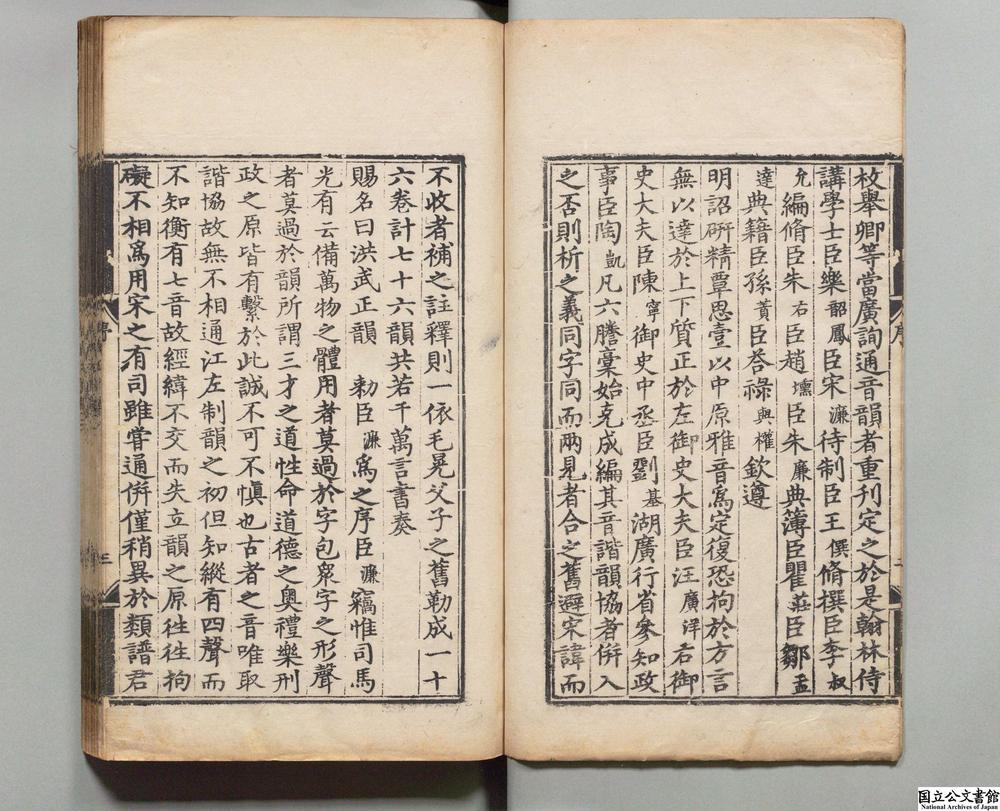 枚舉卿等當廣詢通音韻者重刊定之於是翰林侍
講學士臣樂韶鳳臣宋濂待制臣王僎脩撰臣李叔
允編脩臣朱右臣趙壎臣朱廉典簿臣瞿莊臣鄒孟
達典籍臣孫蕡臣荅祿與權欽遵
明詔研精覃思壹以中原雅音爲定復恐拘於方言
無以達於上下質正於左御史大夫臣汪廣洋右御
史大夫臣陳寧御史中丞臣劉基湖廣行省參知政
事臣陶凱凡六謄稾始克成編其音諧韻協者倂入
之否則析之義同字同而兩見者合之舊避宋諱而
序
不收者補之註釋則一依毛晃父子之舊勒成一十
六卷計七十六韻共若干萬言書奏
賜名曰洪武正韻 勑臣濂爲之序臣濂竊惟司馬
光有云備萬物之體用者莫過於字包衆字之形聲
者莫過於韻所謂三才之道性命道德之奧禮樂刑
政之原皆有繫於此誠不可不愼也古者之音唯取
諧協故無不相通江左制韻之初但知縱有四聲而
不知衡有七音故經緯不交而失立韻之原徃徃拘
礙不相爲用宋之有司雖甞通倂僅稍異於類譜君
序
三
国立公文書館
National Archives of Japan